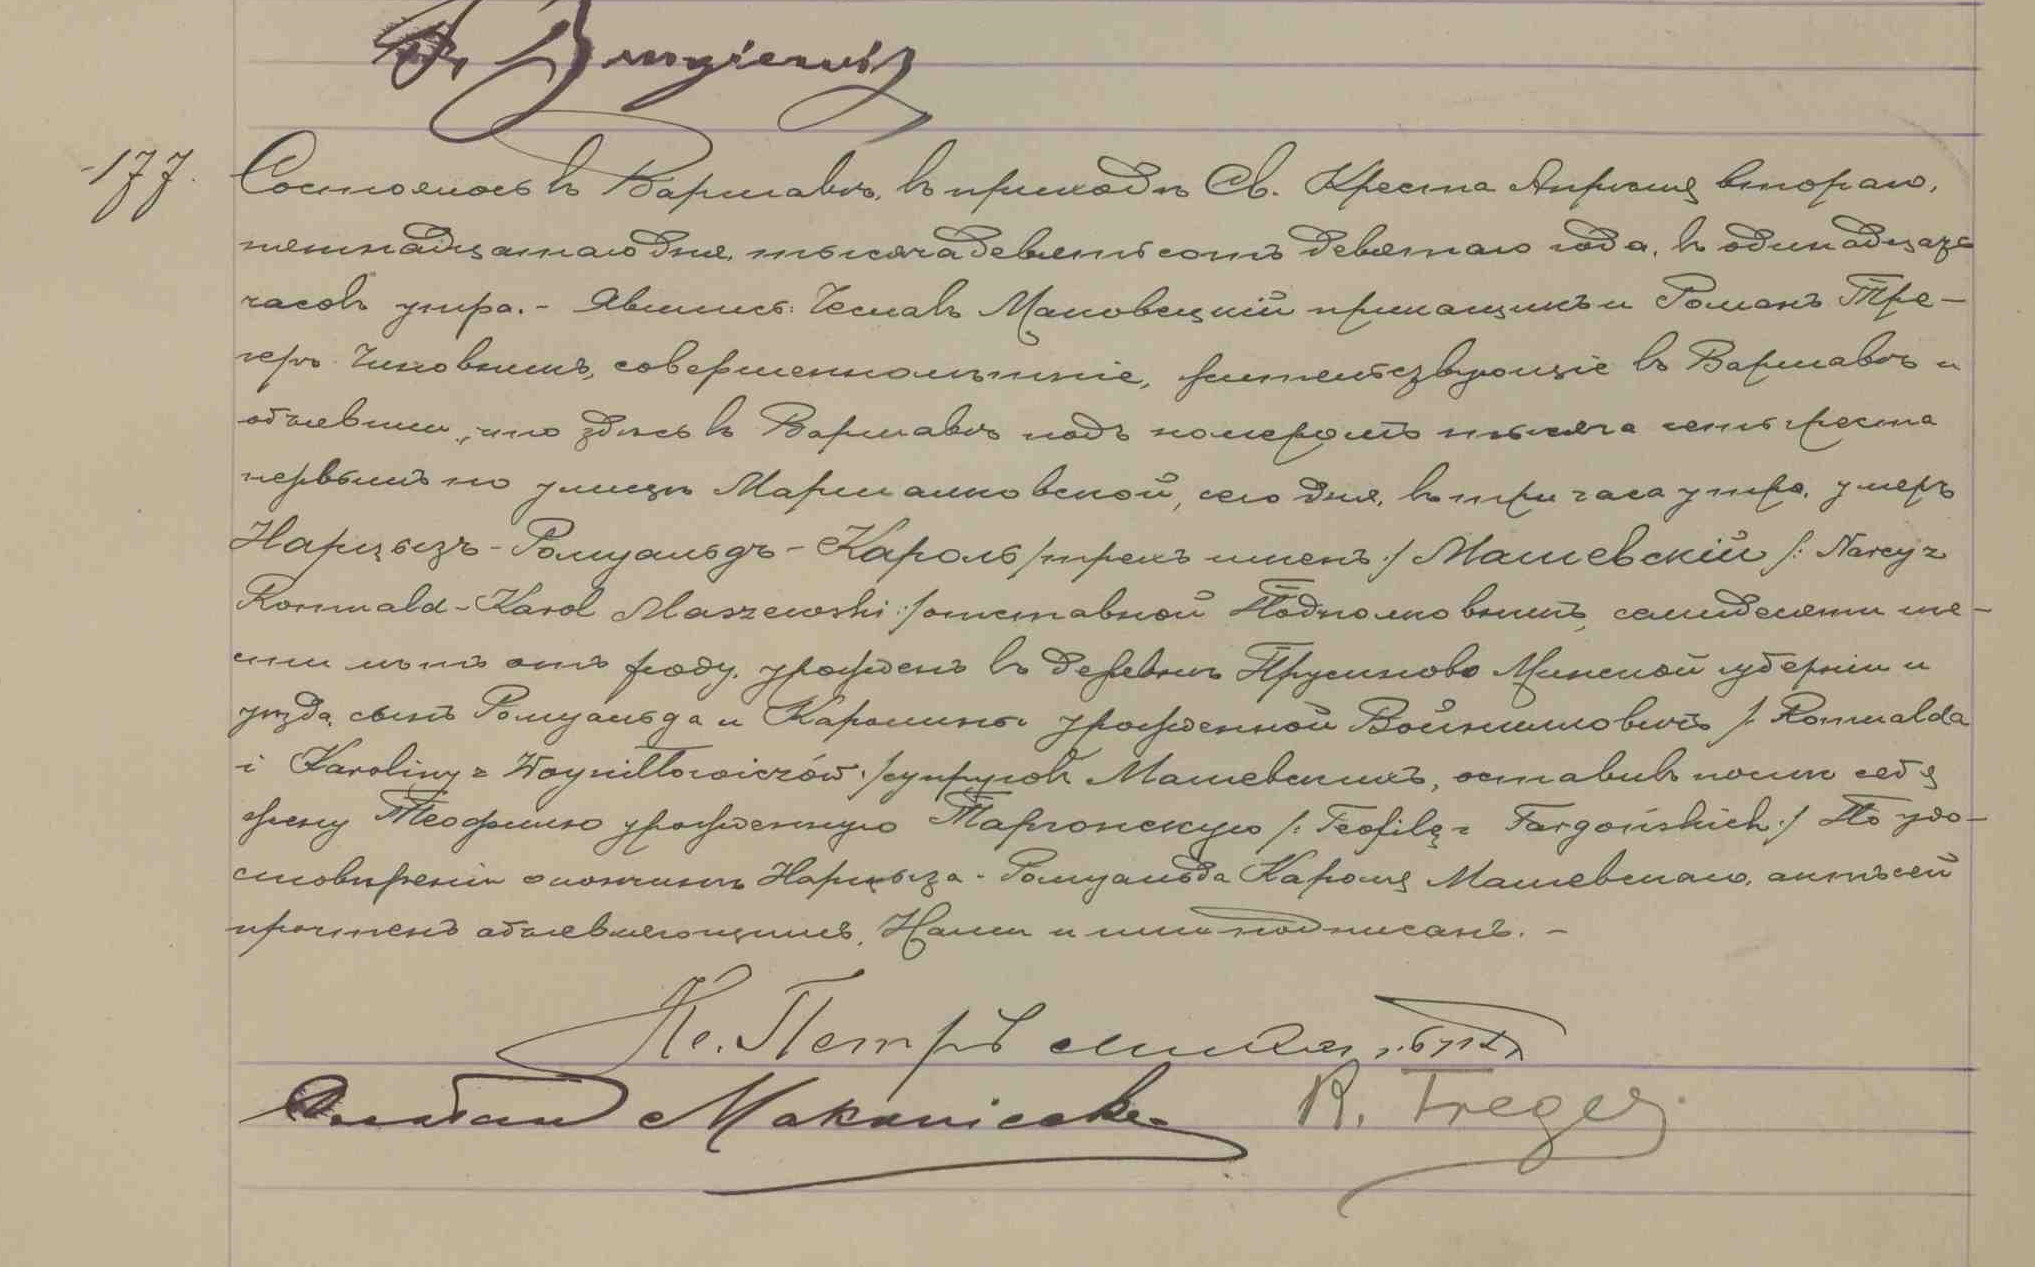 177.
Состоялось въ Варшавѣ, въ приходѣ Св. Креста Апрѣля втораго,
пятнадцатаго дня, тысяча девятьсотъ девятаго года, въ одинадцать
часовъ утра. - Явились: Чеславъ Маковецкій прикащикъ и Романъ Тре-
геръ чиновникъ, совершеннолѣтніе, жительствующіе въ Варшавѣ и
объявили, что здѣсь въ Варшавѣ подъ номеромъ тысяча четыреста
первымъ по улицѣ Маршалковской, сего дня, въ три часа утра, умеръ
Нарцызъ-Ромуальдъ-Кароль /трехъ именъ:/ Машевскій /: Narcyz
Romuald-Karol Maszewski :/ отставной Подполковникъ, семидесяти ше-
сти лѣтъ отъ роду, урожденъ въ деревнѣ Прусиново Минской губерніи и
уѣзда, сынъ Ромуальда и Каролины урожденной Войнилловичъ /: Romualda
i Karoliny z Woyniłłowiczów :/ супруговъ Машевскихъ, оставивъ послѣ себя
жену Теофилю урожденную Таргонскую /: Teofilę z Targońskich :/ По удо-
стовѣреніи о кончинѣ Нарцыза-Ромуальда Кароля Машевскаго, актъ сей
прочтенъ объявляющимъ, Нами и ими подписанъ. -
Кс. Петръ
Makowiecki R. Treger